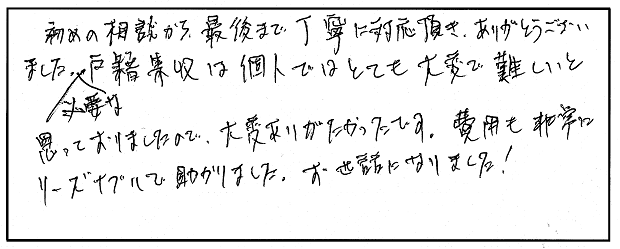 初めの相談から最後まで丁寧に対応頂き、ありがとうござい
ました。戸籍集収は個人ではとても大変で難しいと
必要な
思っておりましたので、大変ありがたかったです。費用も非常に
リーズナブルで助かりました。お世話になりました!